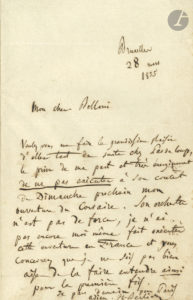 Bruxelles
28 mars
1855
Mon cher Bellani
Voulez vous me faire le grandissime plaisir
d'aller tout de suite chez Pasdeloup,
le prier de ma part et très
de ne pas exécuter à son concert
du Dimanche prochain mon
ouverture du Corsaire. Son orchestre
n'est pas de force, je n'ai
pas encore moi même fait exécuter
cette ouverture en France et vous
concevez que je ne suis pas bien
aise de la faire entendre ainsi
pour la première fois